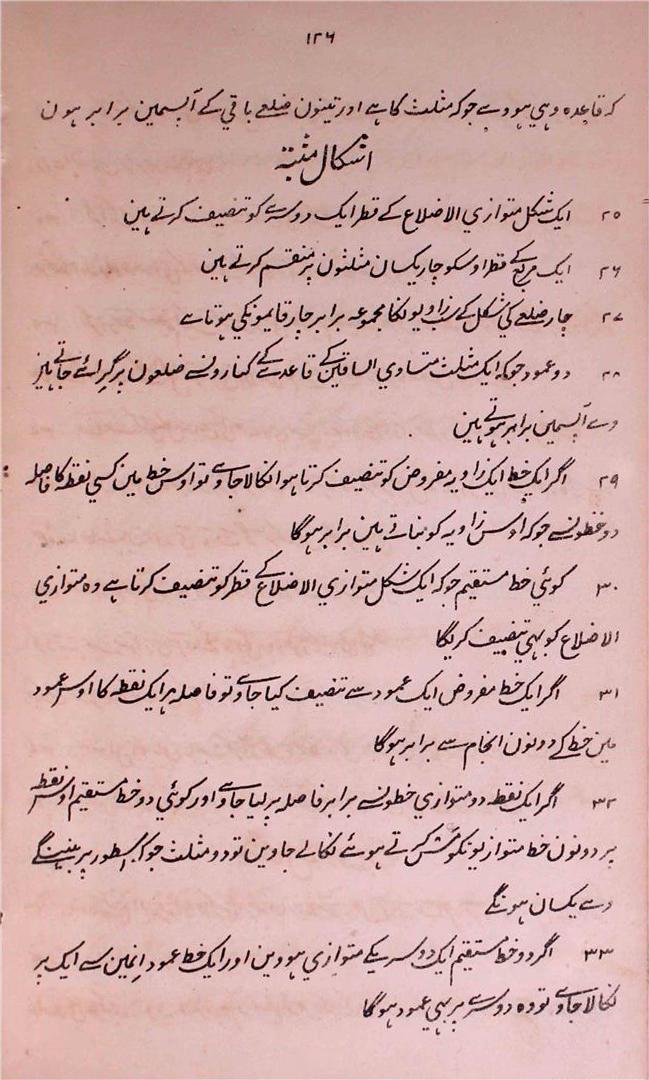 ۱۲۶
کہ قاعدہ وہي ہووے جو کہ مثلث کا ہے اور تینون ضلعے باقي کے آپسمین برابر ہون
اشکال مثبتہ
۲۵ ایک شکل متوازي الاضلاع کے قطر ایک دوسرے کو تنصیف کرتے ہین
۲۶ ایک مربع کے قطر اوسکو چار یکسان مثلثون پر منقسم کرتے ہین
۲۷ چار ضلعے کي شکل کے سب زاویونکا مجموعہ برابر چار قایمونکي ہوتا ہے
۲۸ دو عمود جو کہ ایک مثلث متساوي الساقین کے قاعدے کے کنارونسے ضلعون پر گرائے جاتے ہین
وے آپسمین برابر ہوتے ہین
۲۹ اگر ایک خط ایک زاویہ مفروض کو تنصیف کرتا ہوا نکالا جاوے تو اوس خط مین کسي نقطہ کا فاصلہ
دو خطونسے جو کہ اوس زاویہ کو بناتے ہین برابر ہوگا
۳۰ کوئي خط مستقیم جو کہ ایک شکل متوازي الاضلاع کے قطر کو تنصیف کرتا ہے وہ متوازي
الاضلاع کو بہي تنصیف کریگا
۳۱ اگر ایک خط مفروض ایک عمود سے تنصیف کیا جاوے تو فاصلہ ہر ایک نقطہ کا اوس عمود
مین خط کے دونون انجام سے برابر ہوگا
۳۲ اگر ایک نقطہ دو متوازي خطونسے برابر فاصلہ پر لیا جاوے اور کوئي دو خط مستقیم اوس نقطہ
پر دونون خط متوازیونکو مس کرتے ہوئے نکالے جاوین تو دو مثلث جو کہ اسطور پر بنینگے
وے یکسان ہونگے
۳۳ اگر دو خط مستقیم ایک دوسریکے متوازي ہووین اور ایک خط عمود انمین سے ایک پر
نکالا جاوے تو وہ دوسرے پر بہي عمود ہوگا